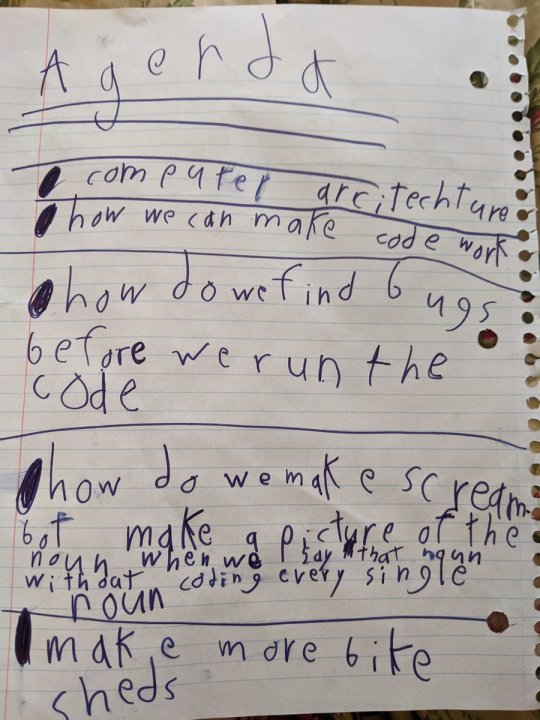 Agenda
computer architechture
how we can make code work
how do we find bugs
before we run the
code
how do we make scream
bot make a picture of the
noun when we say that noun
without coding every single
noun
make more bike
sheds